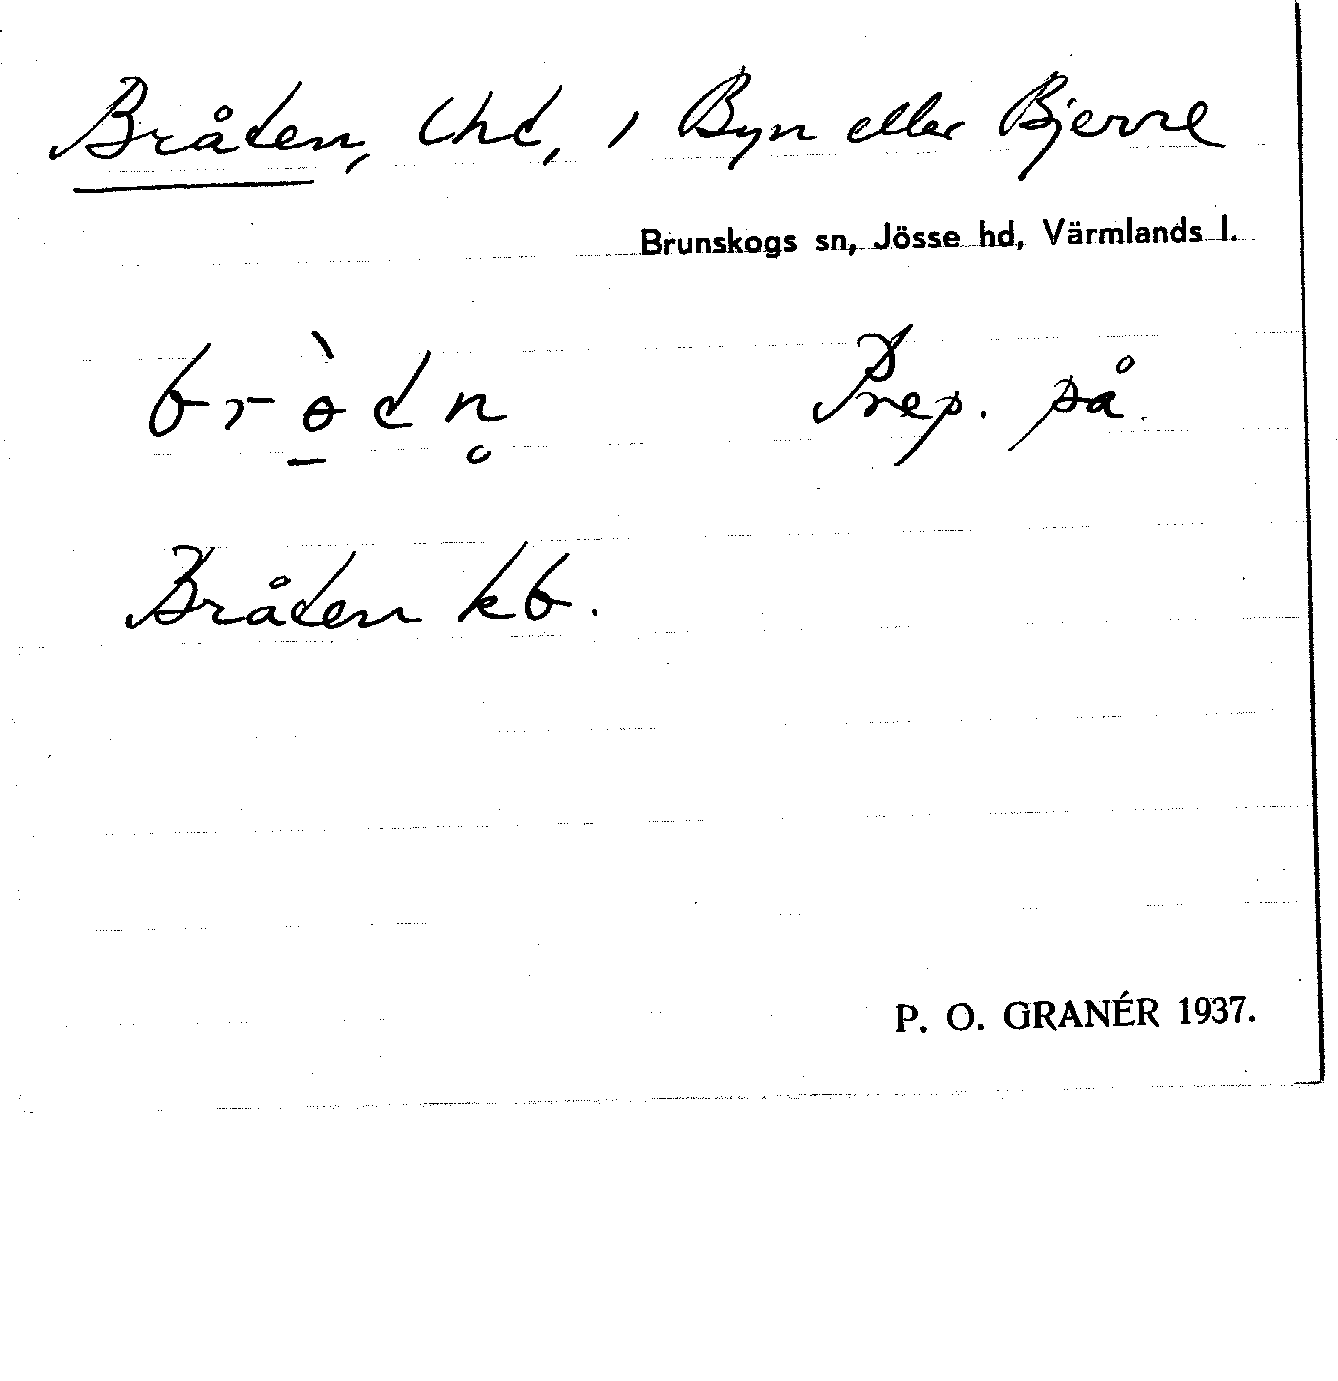 Bråten, Lht, i Byn eller Bjerre
Brunskogs sn, Jösse hd, Värmlands l.
Prep. på.
Bråten kb.
P. O. GRANÉR 1937.